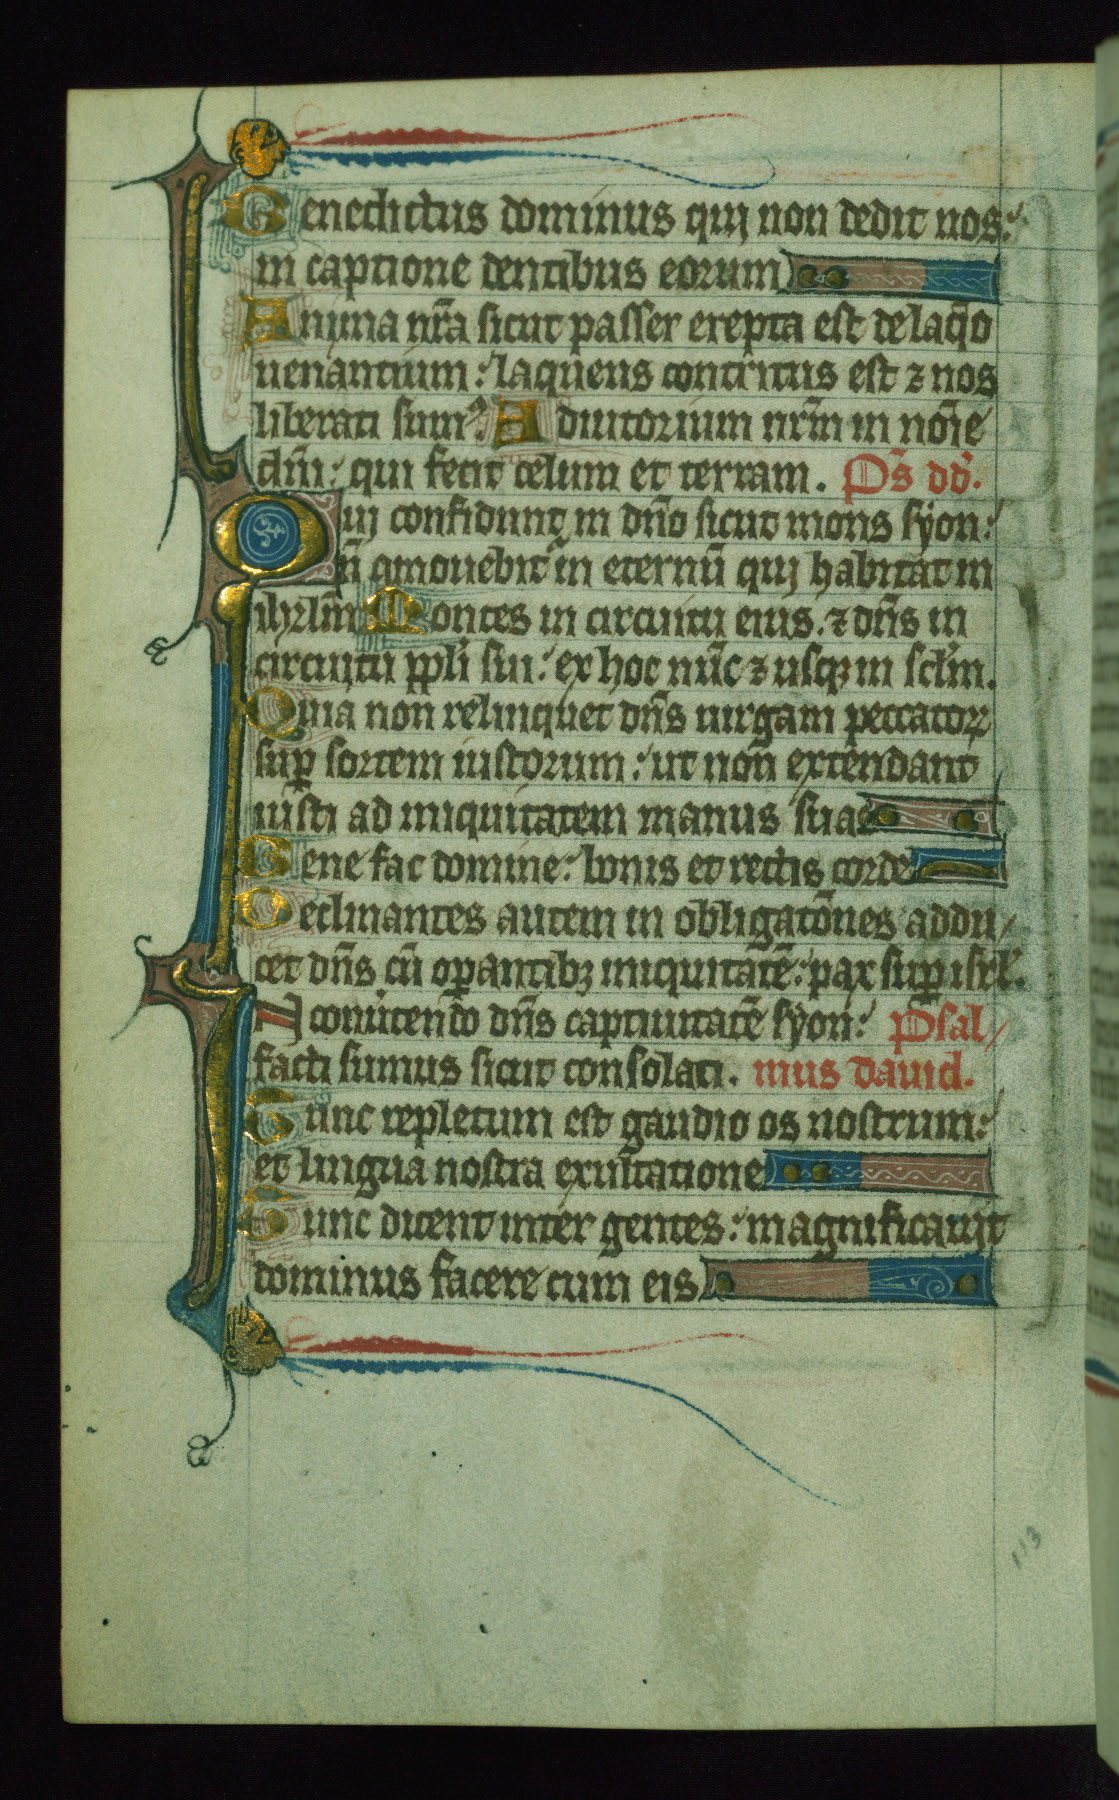 Benedictus dominus quj non dedit nos:
in captione dentibus eorum
Anima nr̃a sicut passer erepta est de laq̃o
uenantium: laqueus contritus est ⁊ nos
liberati sumꝰ: Adiutorium nr̃m in noĩe
dñi: qui fecit celum et terram. Ps̃ dd̉.
Quj confidunt in dño sicut mons syon:
ñ cmouebit᷑ in eternũ quj habitat in
ihrlm̃ Montes in circuitu eius: ⁊ dñs in
circuitu ppl̉i sui: ex hoc nũc ⁊ usqꝫ in scl̉m.
Quia non relinquet dñs uirgam peccatoꝝ
sup̱ sortem iustorum: ut non extendant
iusti ad iniquitatem manus suas
Bene fac domine: bonis et rectis corde
Declinantes autem in obligatõnes addu/
cet dñs cũ op̱antibꝫ iniquitatẽ: pax sup̱ isrl̉.
In conuertendo dñs captiuitatẽ syon: Psal/
facti sumus sicut consolati. mus dauid.
Tunc repletum est gaudio os nostrum:
et lingua nostra exultatione
Tunc dicent inter gentes: magnificauit
dominus facere cum eis
113